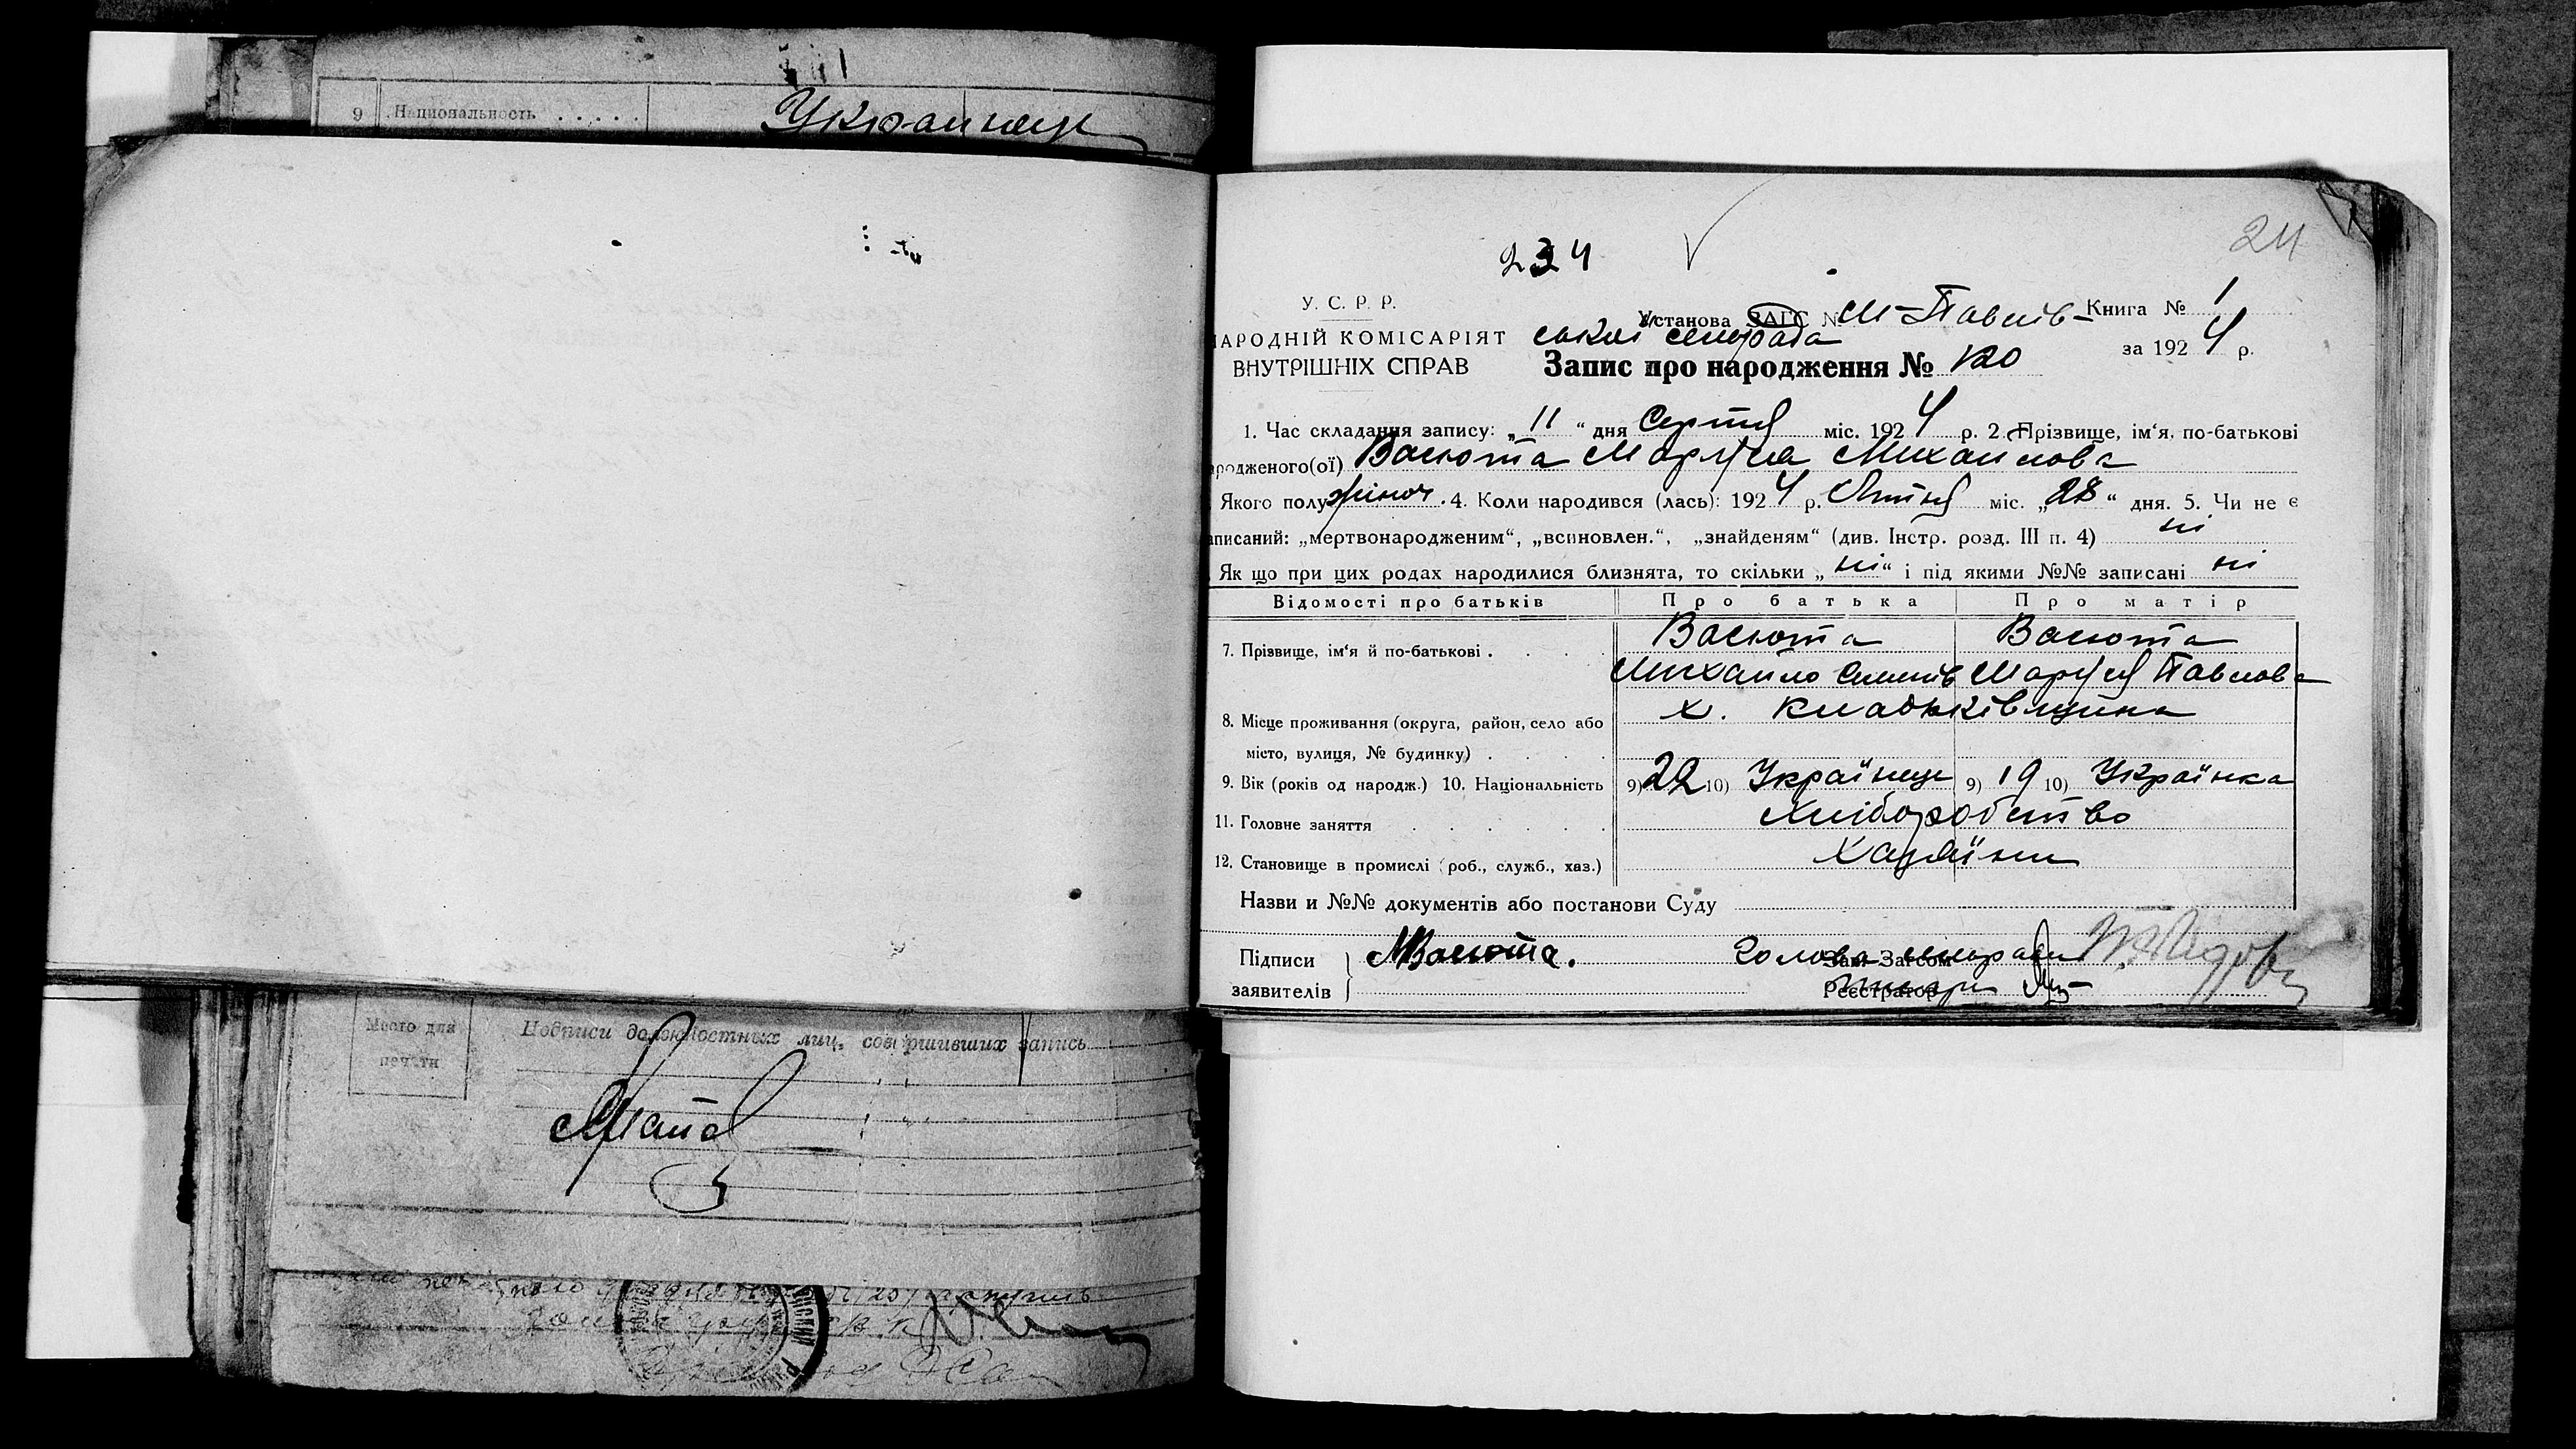 9 Национальность . . . . . Украинец
24
234
У. С. Р. Р.
Установа ЗАГС № М-Павлів- Книга № 1
НАРОДНІЙ КОМІСАРІЯТ ської сільрада
за 1924 р.
ВНУТРІШНІХ СПРАВ Запис про народження № 120
1. Час складання запису: „ 11 “ дня Серпня міс. 1924 р. 2. Прізвище, ім‘я, по-батькові
родженого(ої) Васюта Маруся Михайлова
Якого полу жіноч. 4. Коли народився (лась): 1924 р. Липня міс. „28“ дня. 5. Чи не є
записаний: „мертвонародженим“, „всиновлен.“, „знайденям“ (див. Інстр. розд. III п. 4) ні
Як що при цих родах народилися близнята, то скільки „ ні “ і під якими №№ записані ні
Відомості про батьків Про батька Про матір
7. Прізвище, ім‘я й по-батькові . . . . Васюта Васюта
Михайло Маруся Павлова
8. Місце проживання (округа, район, село або х.
місто, вулиця, № будинку) . . . .
9. Вік (років од народж.) 10. Національність 9) 22 10) Українець 9) 19 10) Українка
11. Головне заняття . . . . . . Хліборобство
12. Становище в промислі (роб., служб., хаз.) Хазяїни
Назви и №№ документів або постанови Суду
Підписи МВасюта. Голова сільради
Зав. Загсом
заявителів Реєстратор
Место для печати
Подписи должностных лиц, совершивших запись